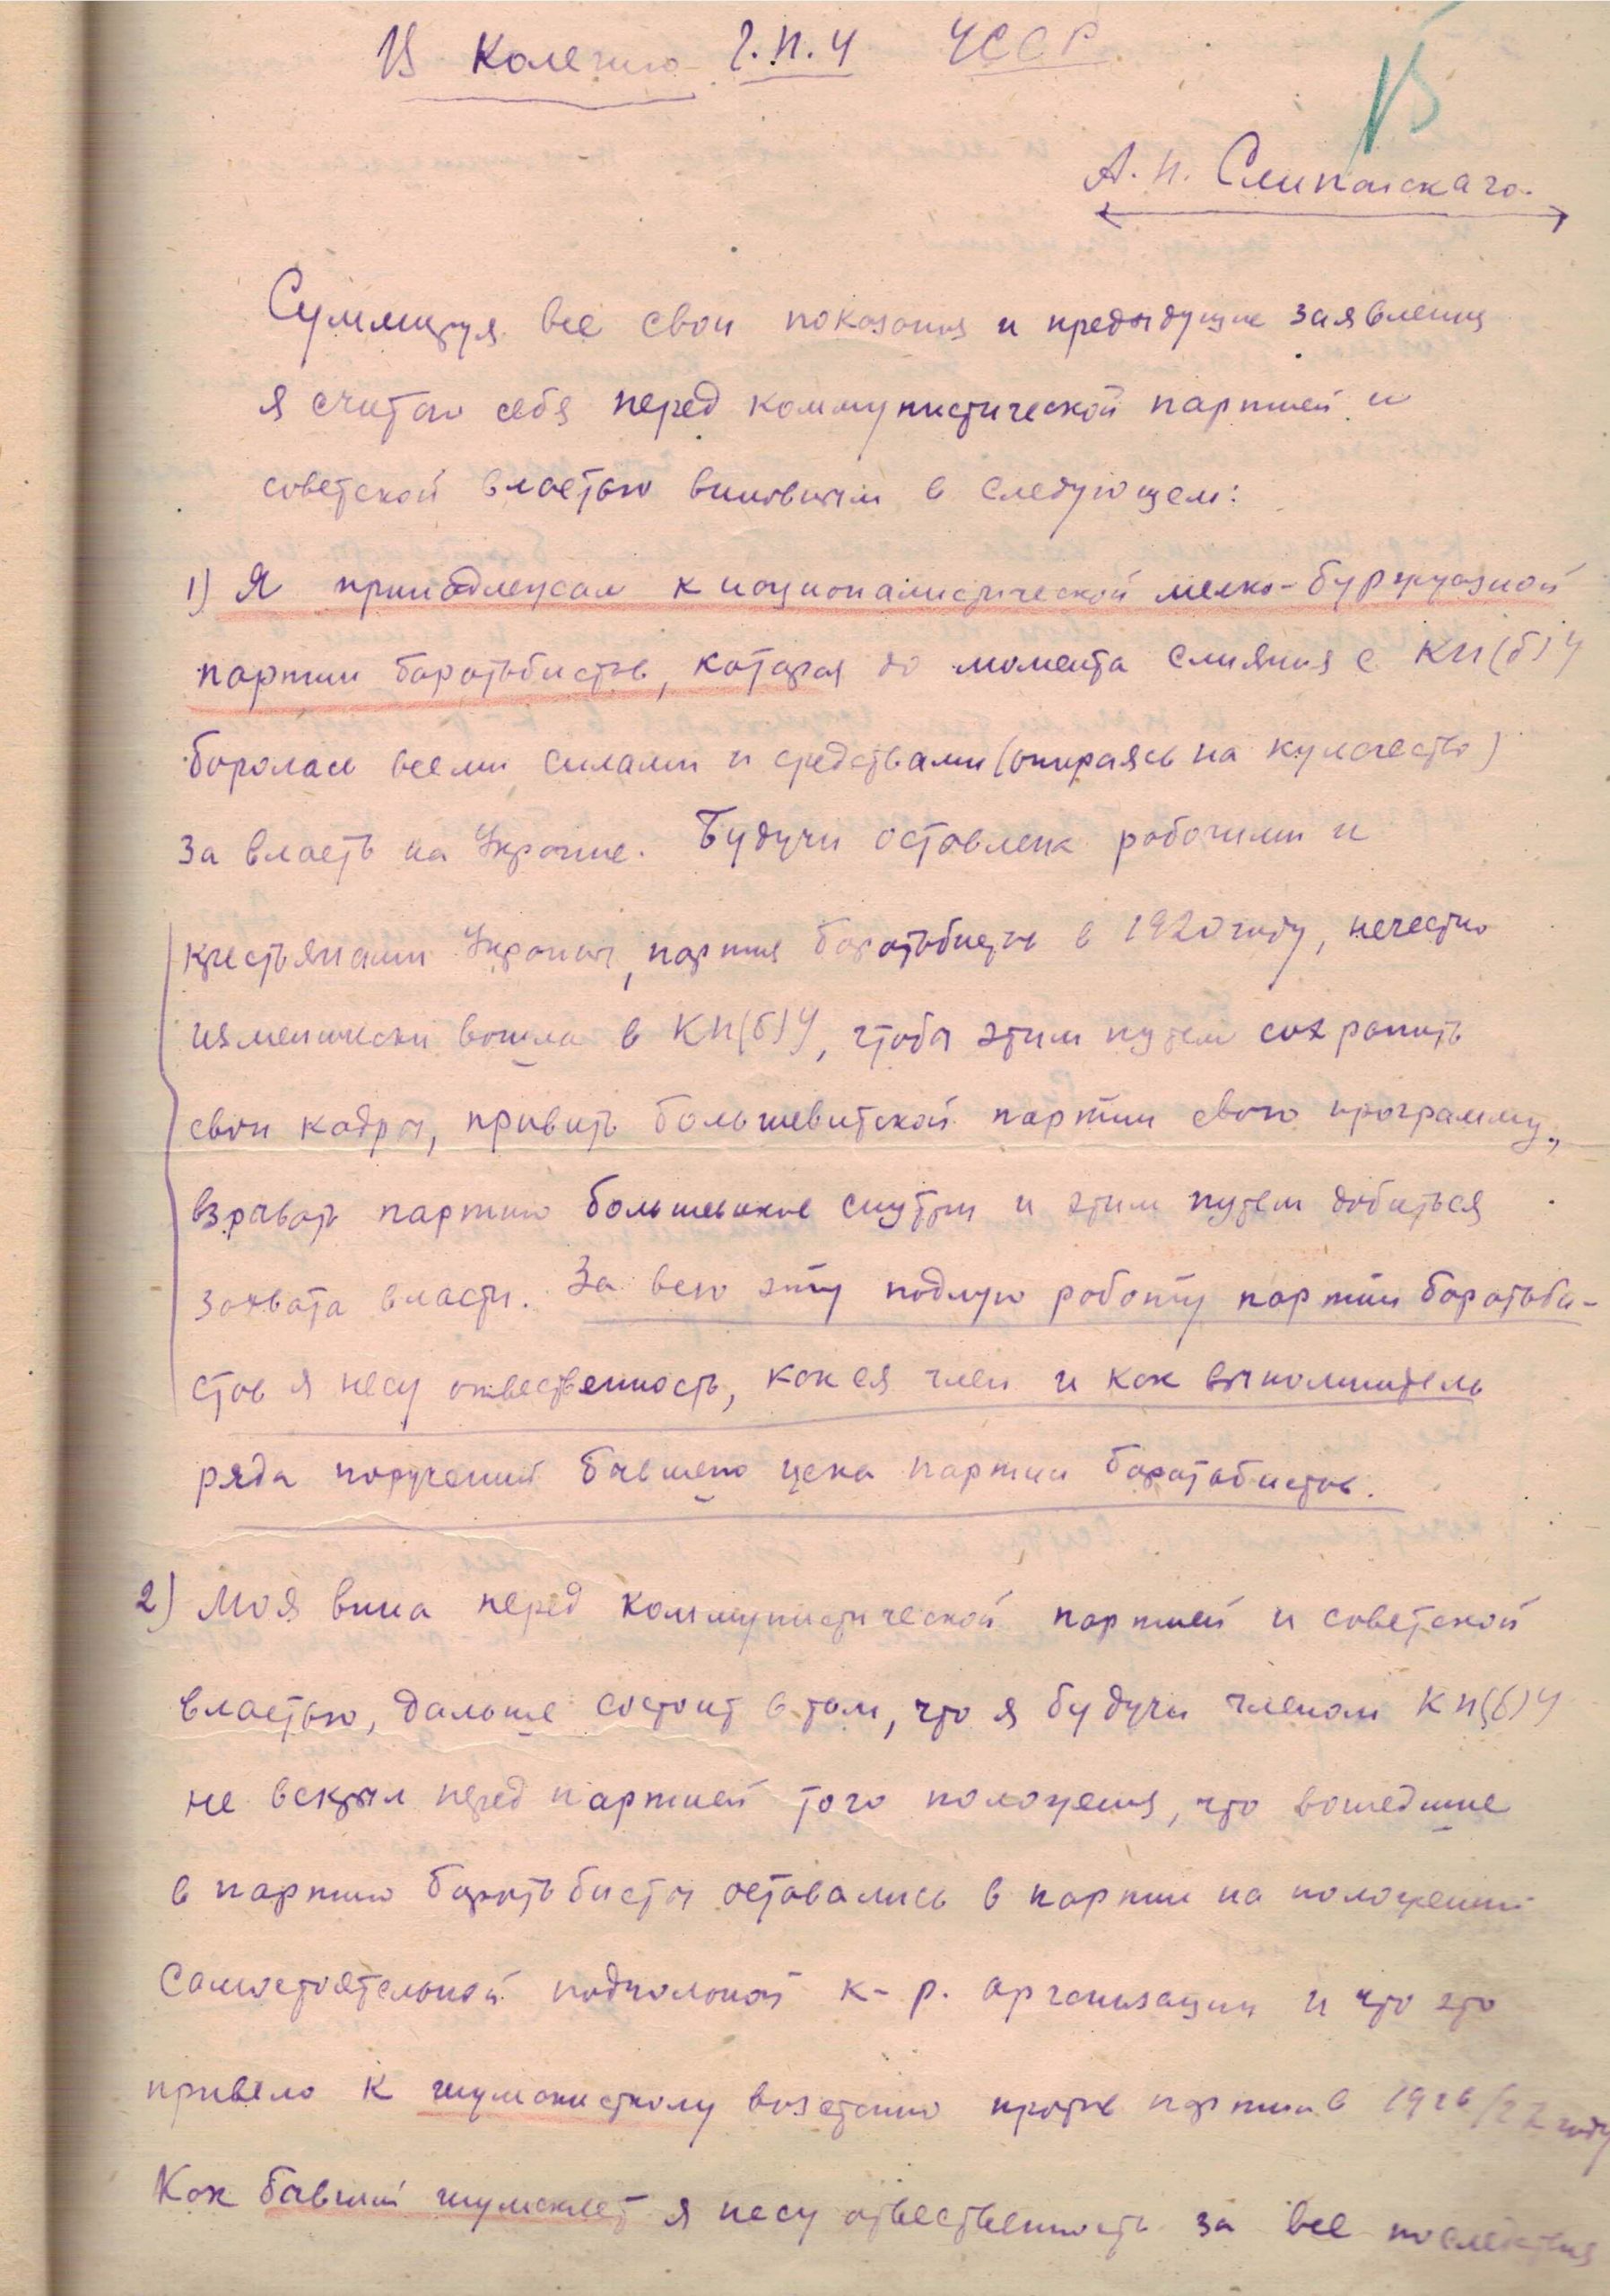 В Колегию Г.П.У УССР
А. П. Слипанскаго.
Суммируя все свои показания и предыдущие заявления
я считаю себя перед коммунистической партией и
советской властью виновным в следующем:
1) Я принадлежал к националистической мелко-буржуазной
партии боротьбистов, которая до момента слияния с КП(б)У
боролась всеми силами и средствами (опираясь на кулачество)
за власть на Украине. Будучи оставлена рабочими и
крестьянами Украины, партия боротьбистов в 1920 году, нечестно
изменически вошла в КП(б)У, чтобы этим путем сохранить
свои кадры, привить большевитской партии свою программу,
взрывать партию большевиков снутри и этим путем добиться
захвата власти. За всю эту подлую работу партии боротьби-
стов я несу ответственность, как ея член и как выполнитель
ряда поручений бывшего цека партии боротьбистов.
2) Моя вина перед коммунистической партией и советской
властью, дальше состоит в том, что я будучи членом КП(б)У
не вскрыл перед партией того положения, что вошедшие
в партию боротьбисты оставались в партии на положении
самостоятельной подпольной к-р. организации и что это
привело к шумскистскому возстанию против партии в 1926/27 году
Как бывший шумскист я несу ответственность за все последствия